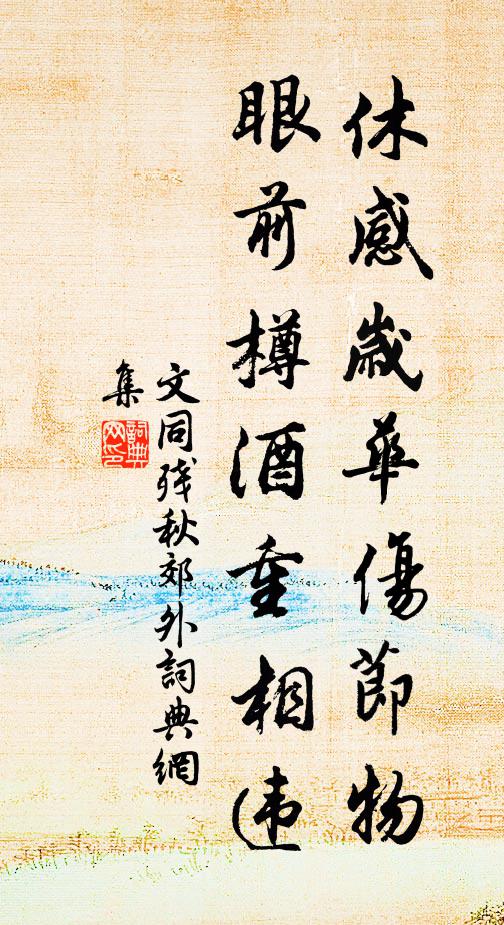 休感歲華傷節物
眼前樽酒重相违
文同殘秋郊外詞典網
集
詞典网印